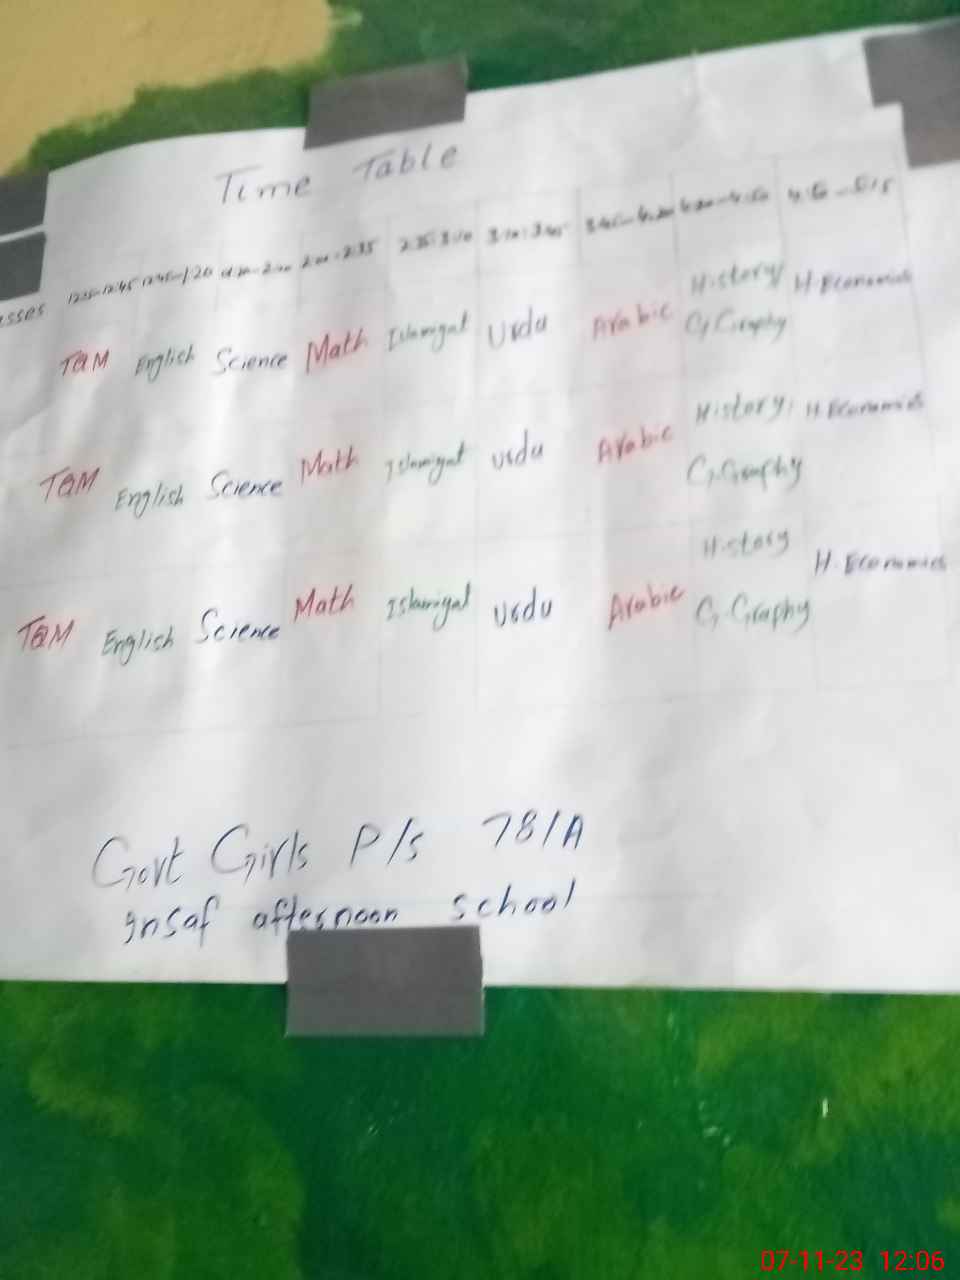 Time Table
sses 12:15-12:45 12:45-1:20 2:00-2:35 2:35-3:10 3:10-3:45 3:45-4:20
TQM English Science Math Islamiyat Urdu Arabic History/ G.Graphy H.Economics
TQM English Science Math Islamiyat Urdu Arabic History, G.Graphy H.Economics
TQM English Science Math Islamiyat Urdu Arabic History G.Graphy H.Economics
Govt Girls P/s 781A
Insaf afternoon school
07-11-23 12:06